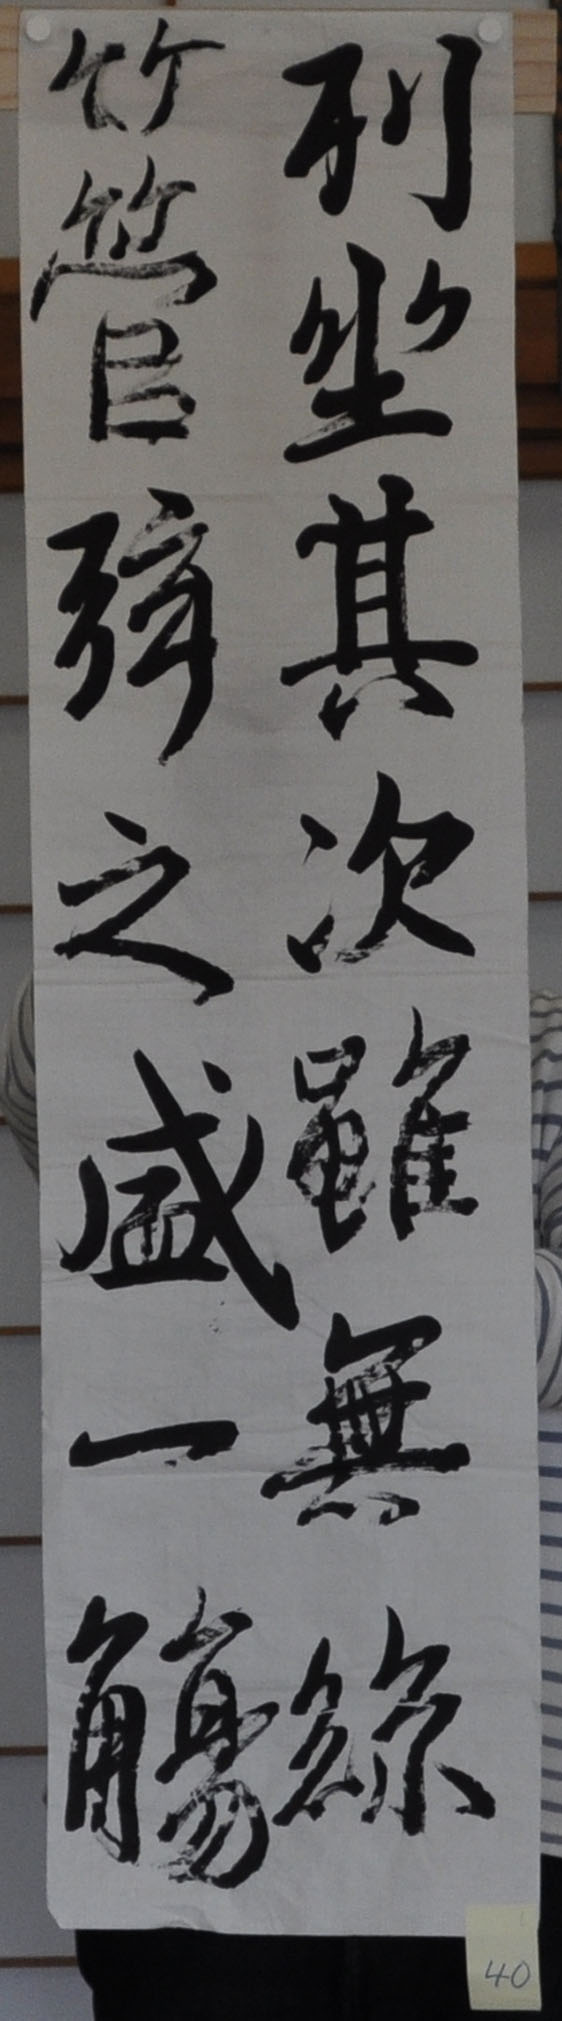 列坐其次雖無絲
竹管弦之盛一觴
40